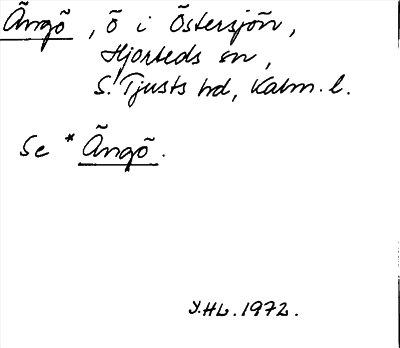 Ängö, ö i Östersjön,
Hjorteds sn,
S. Tjusts hd, Kalm. l.
Se *Ängö.
Y.HL. 1972.